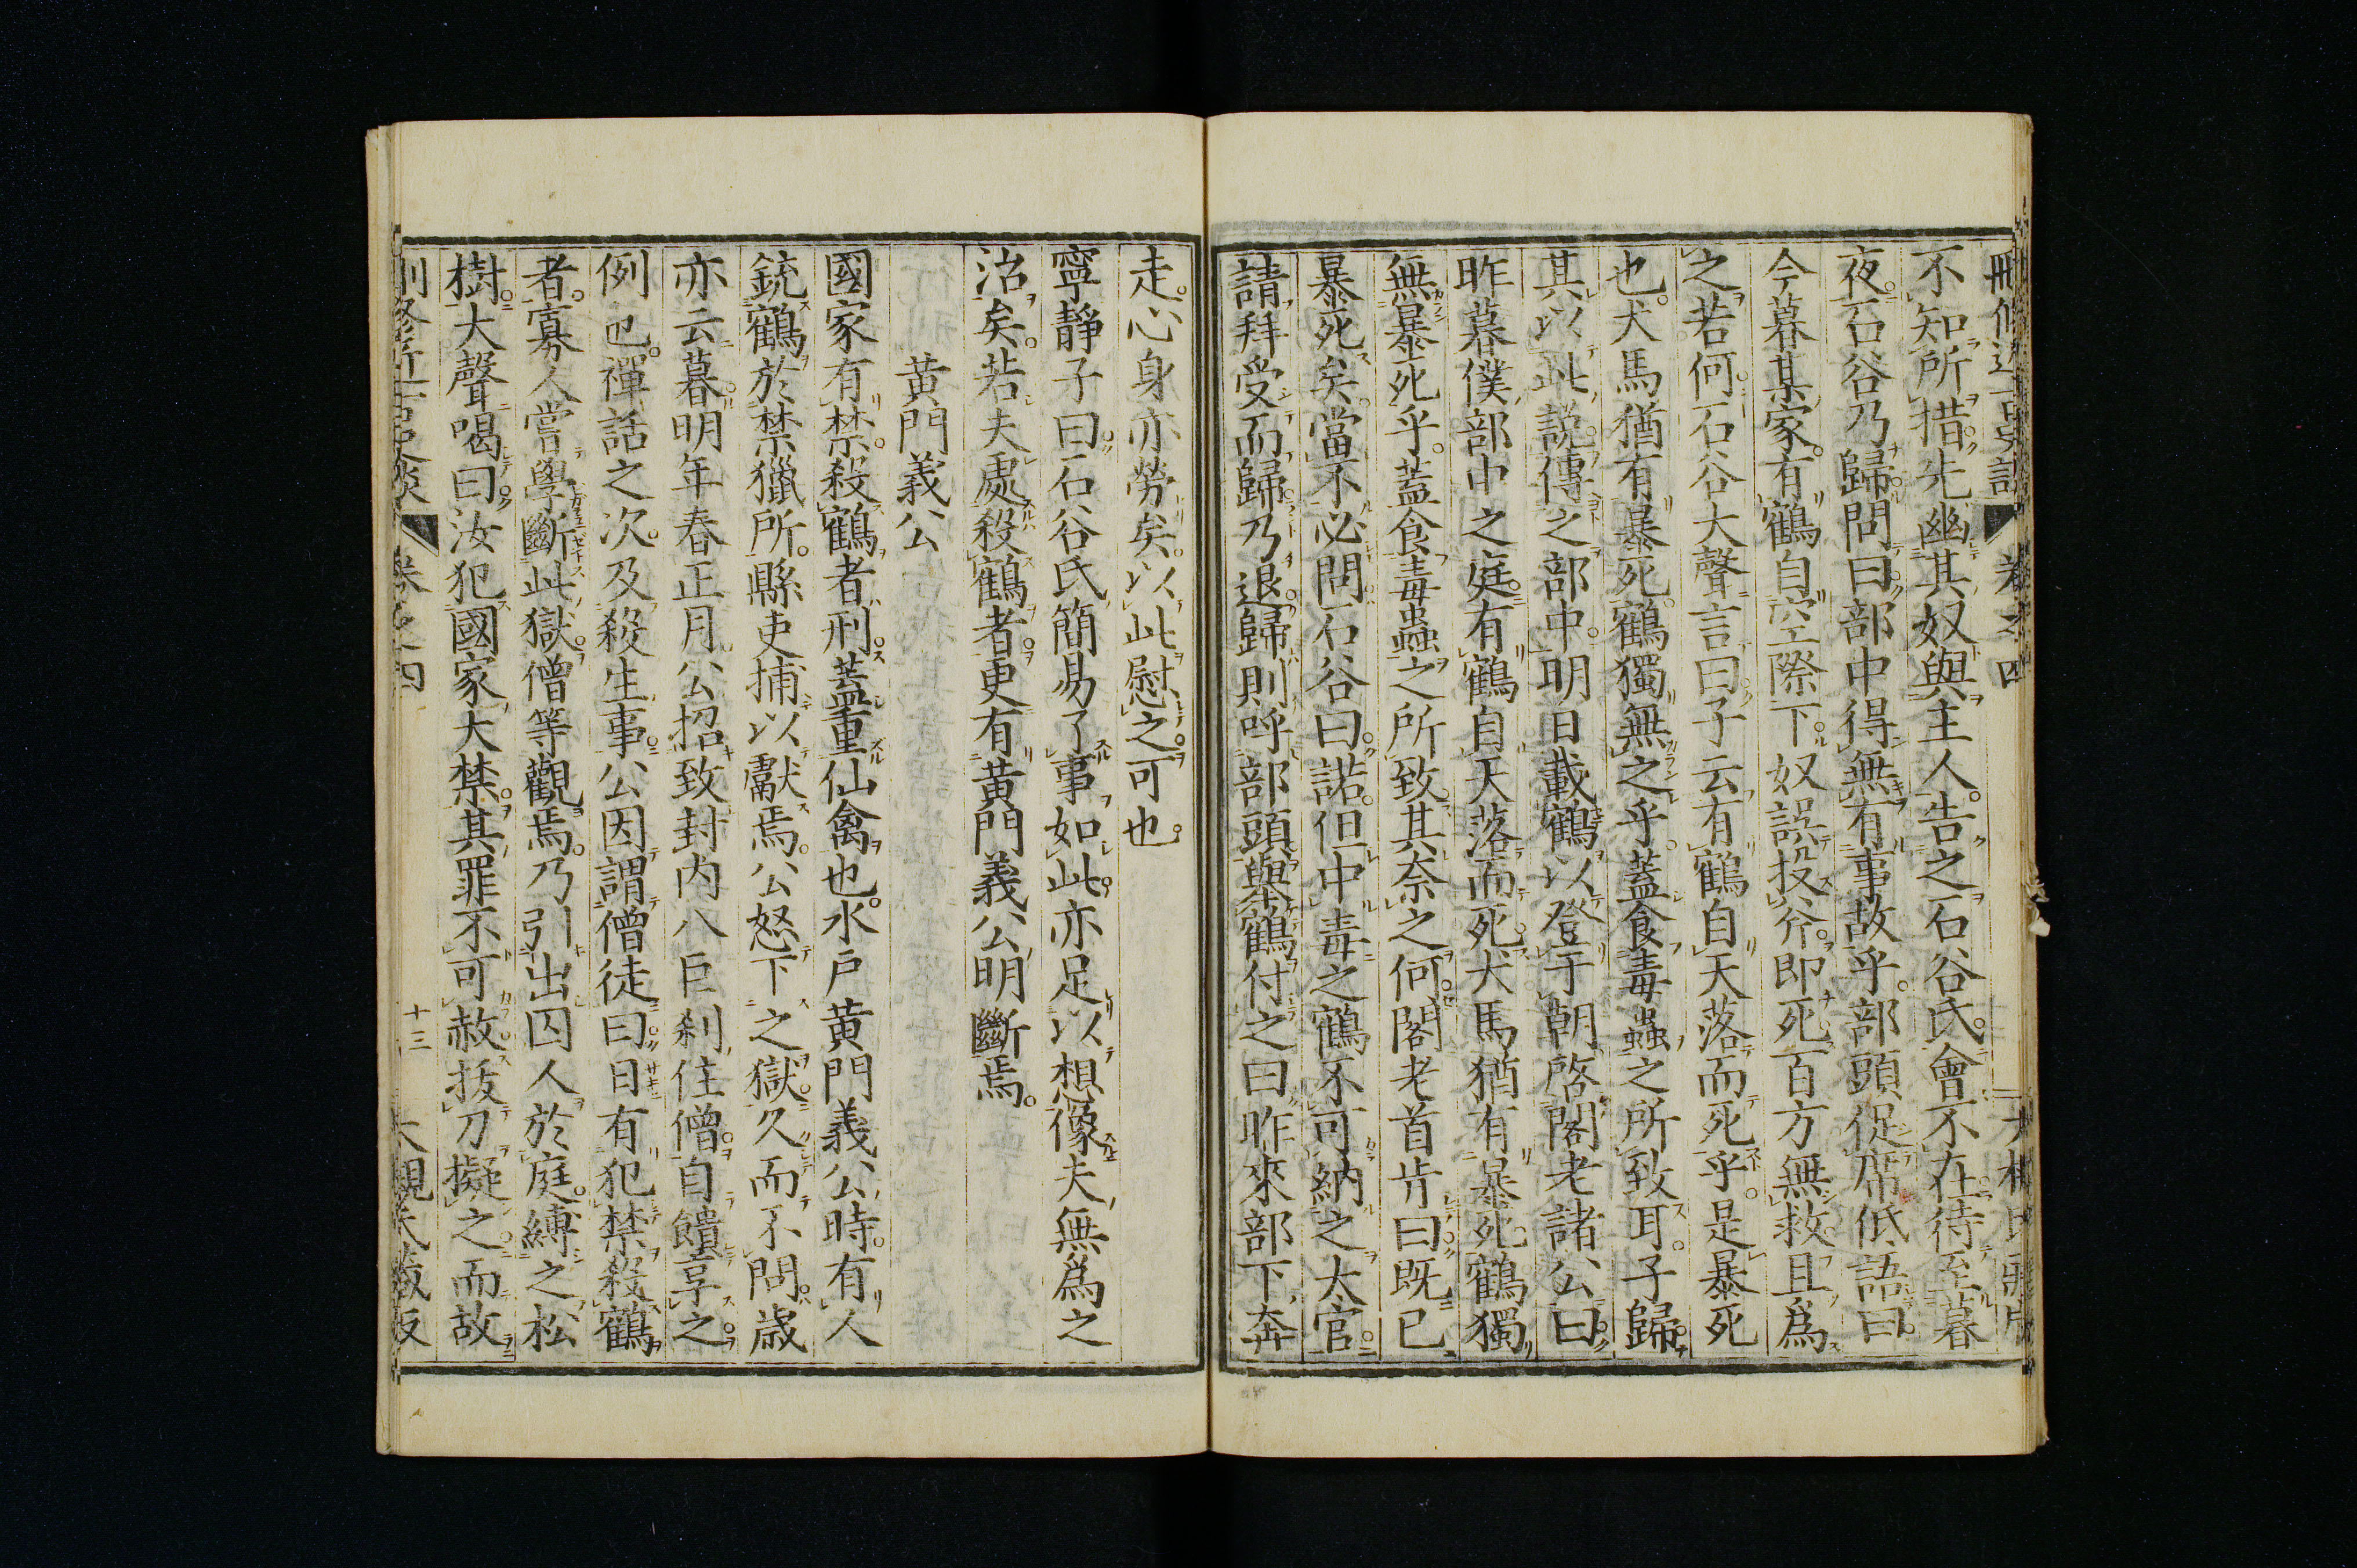 不知所措先幽其奴與主人告之石谷氏會不在待至暮
夜石谷乃歸問曰部中得無有事故乎部頭促席低語曰
今暮某家有鶴自空際下奴誤投斧即死百方無救且爲
之若何石谷大聲言曰子云有鶴自天落而死乎是暴死
也犬馬猶有暴死鶴獨無之乎蓋食毒蟲之所致耳子歸
其以此説傳之部中明日載鶴以登于朝啓閣老諸公曰
昨暮僕部中之庭有鶴自天落而死犬馬猶有暴死鶴獨
無暴死乎蓋食毒蟲之所致其奈之何閣老首肯曰既已
暴死矣當不必問石谷曰諾但中毒之鶴不可納之太官
請拜受而歸乃退歸則呼部頭與鶴付之曰昨來部下奔
走心身亦勞矣以此慰之可也
寧靜子曰石谷氏簡易了事如此亦足以想像夫無爲之
治矣若夫處殺鶴者更有黄門義公明斷焉
黄門義公
國家有禁殺鶴者刑蓋重仙禽也水戸黄門義公時有人
銃鶴於禁獵所縣吏捕以獻焉公怒下之獄久而不問歳
亦云暮明年春正月公招致封内八巨刹住僧自饋享之
例也禪話之次及殺生事公因謂僧徒曰日有犯禁殺鶴
者寡人嘗學斷此獄僧等觀焉乃引出囚人於庭縛之松
樹大聲喝曰汝犯國家大禁其罪不可赦抜刀擬之而故
卷之四
十三
大槻氏藏版